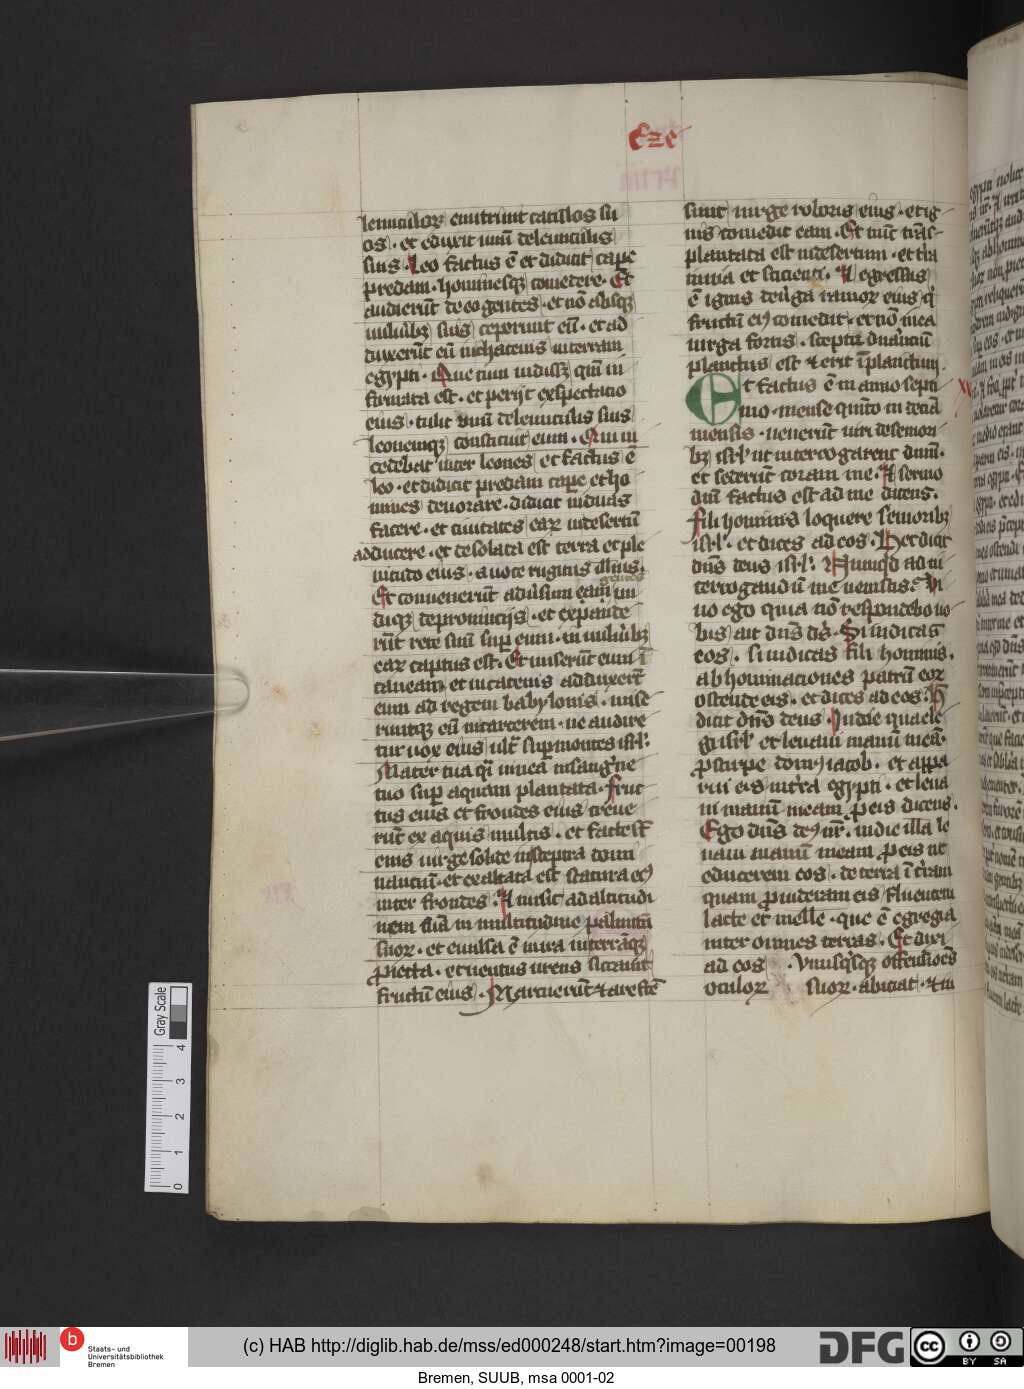 Eze
leunculor enutriuit catulos su
os · et eduxit unu de leunculis
suis · Leo factus e et didicit cape
predam · hominesq comedere · Et
audierut de eo gentes · et no absq
uulnibz suis ceperunt eu · et ad
duxerut eu in chatenis in terram
egypti · Que cum uidissz qm in
firmata est · et perijt exspectacio
eius · tulit unu de leunculis suis
leonemqz constituit eum · Qui in
cedebat inter leones et factus e
leo · et didicit predam cape et ho
mines deuorare · didicit uiduas
facere · et ciuitates eaz in desertu
adducere · et desolata est terra et ple
nitudo eius · a uoce rugitus illius ·
gentes
Et conuenerut adusum eam un
diqz de prouincijs · et expande
rut rete suu sup eum · in uulnibz
eaz captus est · Et miserut eum i
caueam et in catenis adduxert
eum ad regem babylonis · mise
runtqz eu in carcerem · ne audire
tur uox eius ult sup montes isrl ·
Mater tua qi uinea in sangne
tuo sup aquam plantata · fruc
tus eius et frondes eius creue
rut ex aquis multis · et facte st
eius uirge solide in sceptra domi
nanciu · et exaltata est statura ei
inter frondes · Et uidit altitudi
nem sua in multitudine palmitu
suor · et euulsa e in ira in terraqz
proiecta · et uentus urens siccauit
fructu eius · Marcuerut & arefce
sunt uirge roboris eius · et ig
nis comedit eam · Et nuc tns
plantata est in desertum · et tra
inuia et sicienti · Et egressus
e ignis de uga ramor eius q
fructu ei comedit · et no i ea
uirga fortis · sceptr dnanciu
planctus est & erit i planctum ·
XX
Et factus e in anno septi
mo · mense quinto in decia
mensis · uenerut uiri de senior
bz isrl ut interrogarent dnm ·
et sederut coram me · Et sermo
dni factus est ad me dicens ·
fili hominis loquere senioribz
isrl · et dices ad eos · Hec dicit
dns deus isrl · Numqd ad in
terrogandu me uenistis? Vi
uo ego quia no respondebo uo
bis ait dns ds · Si iudicas
eos · si iudicas fili hominis ·
abhominaciones patru eor
ostende eis · et dices ad eos · H
dicit dns deus · In die qua ele
gi isrl et leuaui manu mea ·
p stirpe dom iacob · et appa
rui eis in tra egypti · et leua
ui manu meam p eis dicens ·
Ego dns de ur · in die illa le
uaui manu meam p eis ut
educerem eos · de terra i tram
quam prouideram eis fluentem
lacte et melle · que e egregia
inter omnes terras · Et dixi
ad eos · Vnusqsqz offensiones
oculor suor · abiciat · & in
Gray Scale
4
3
2
1
0
Staats- und
Universitätsbibliothek
Bremen
(c) HAB http://diglib.hab.de/mss/ed000248/start.htm?image=00198
DFG
cc BY SA
Bremen, SUUB, msa 0001-02